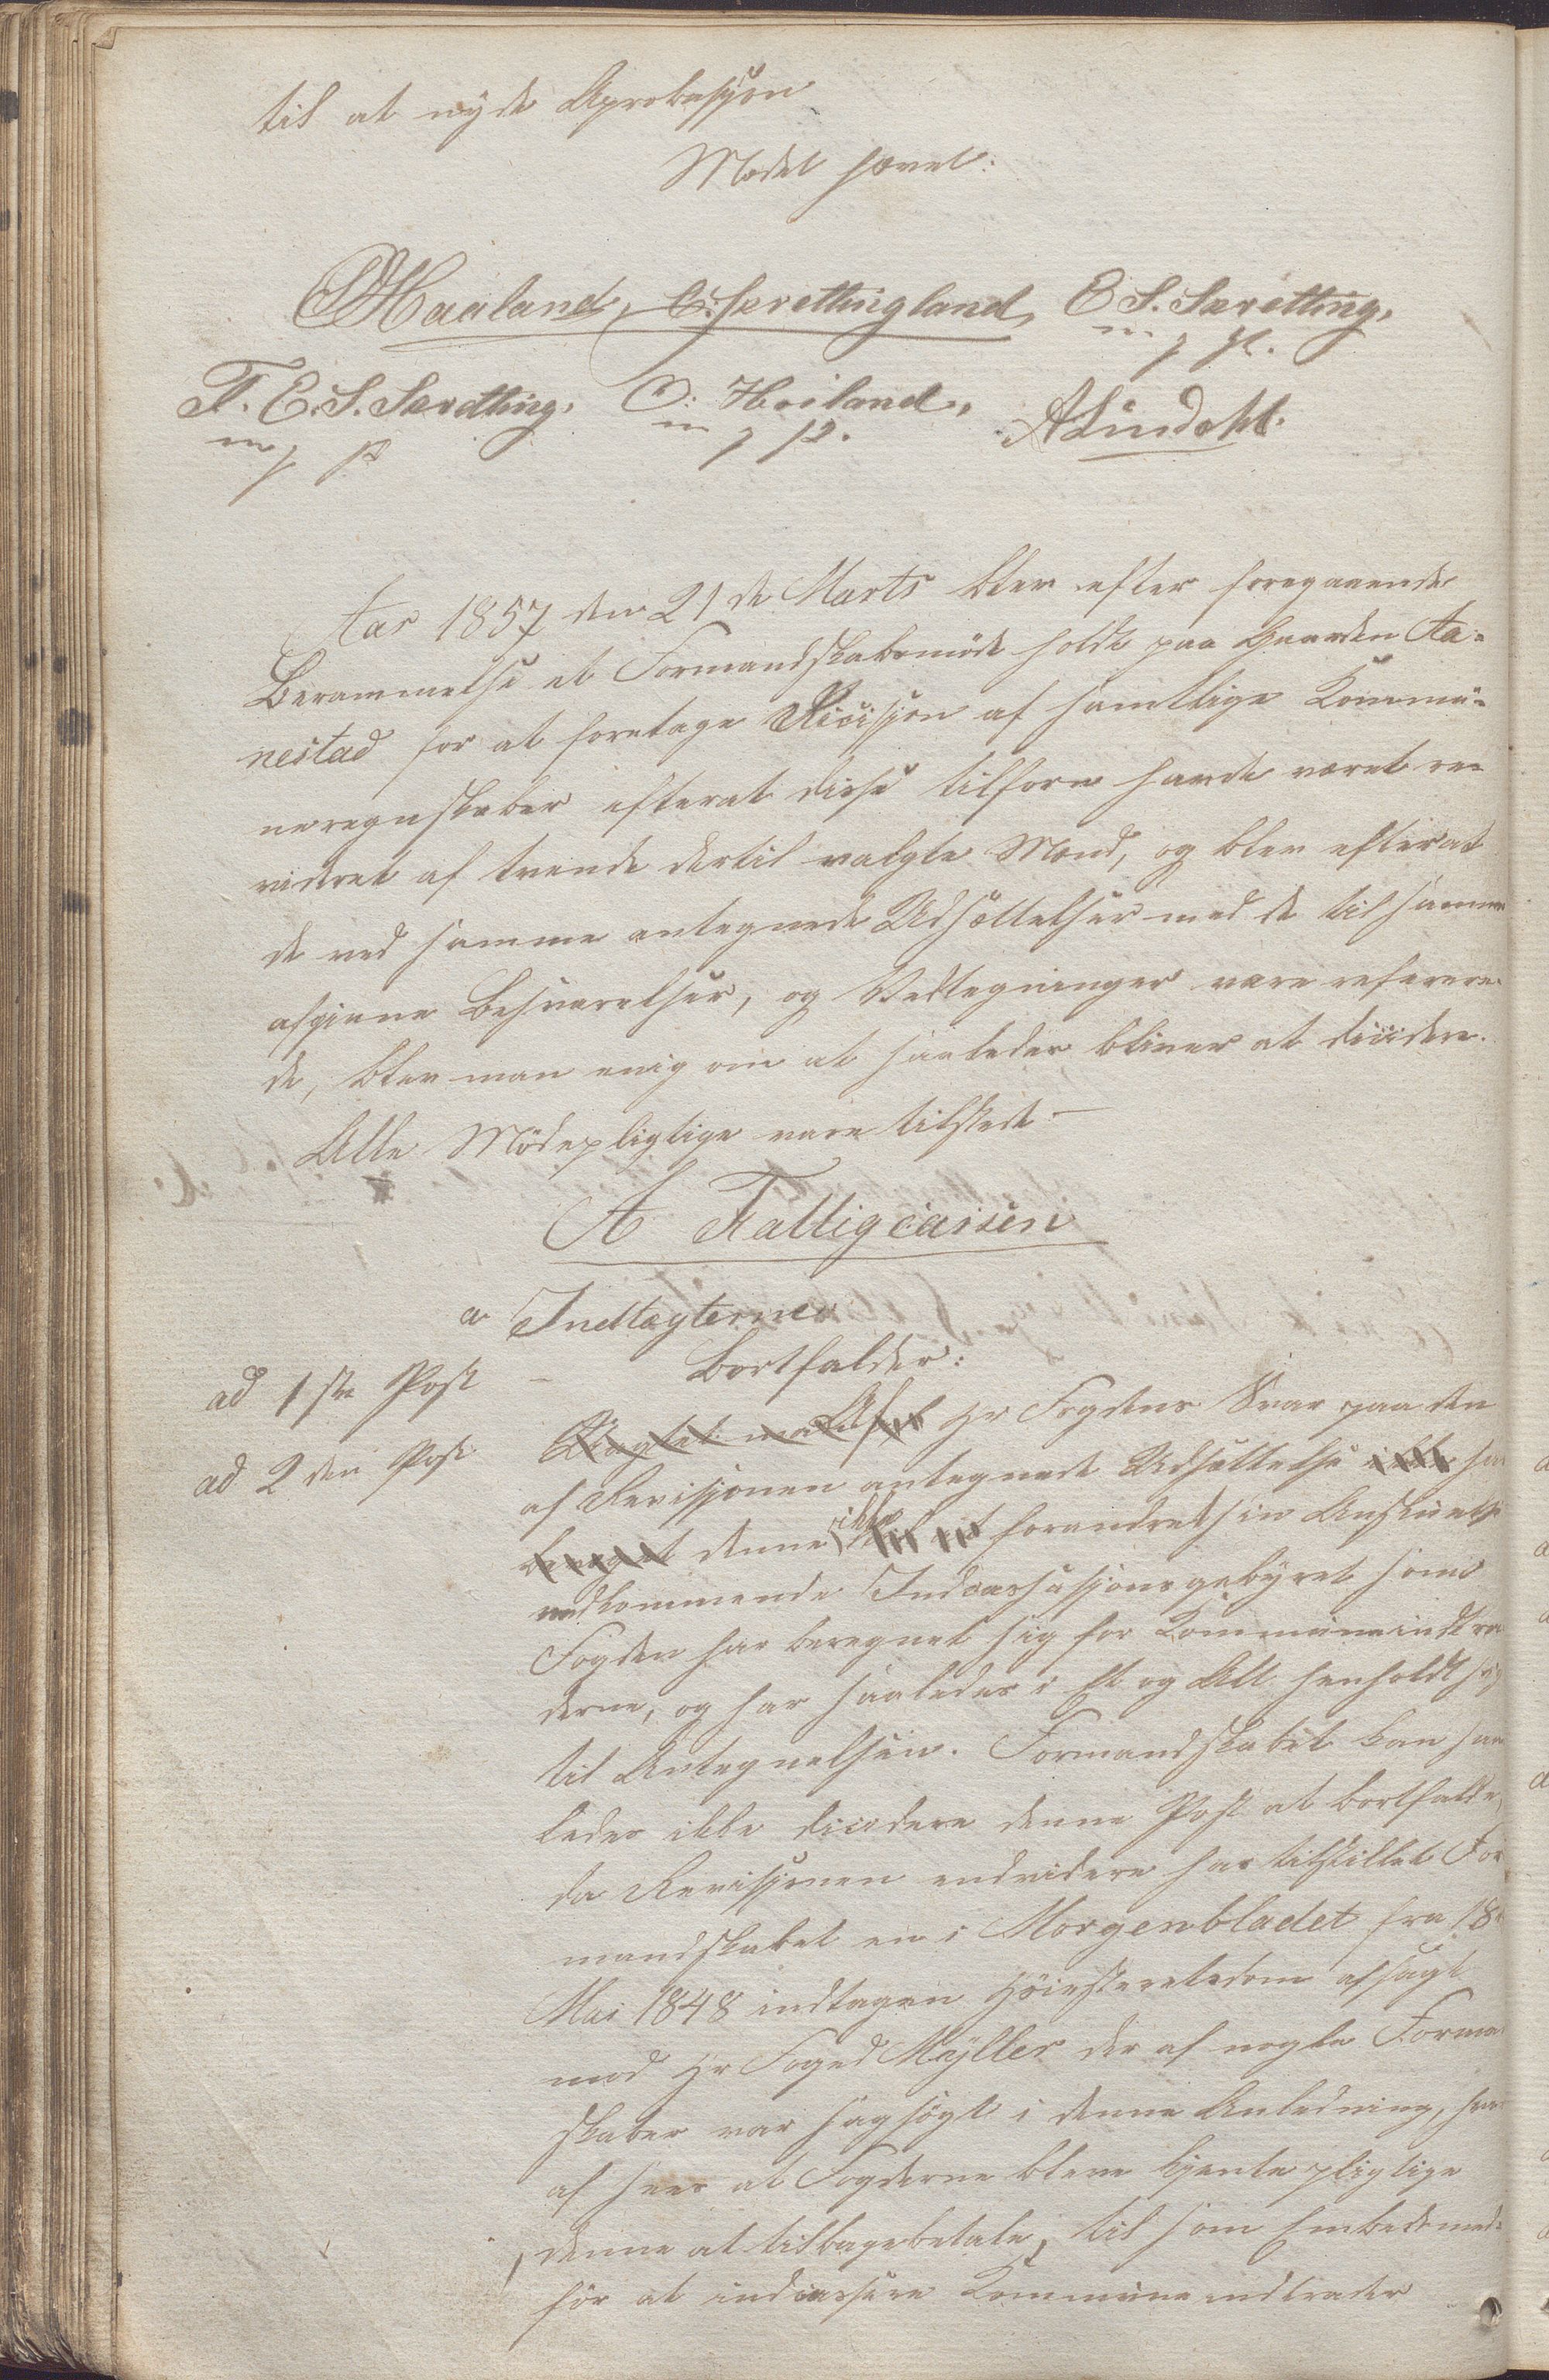 til at nyde Aprobasjon
Mødet hævet:
Haaland, C: Sevettingland, E S. Sævetting,
m p p.
T. E. S. Sævetting, O: Heiland, ALindahl.
m p p m p p.
Aar 1857 den 21de Marts blev efter foregaaende
Berammelse et Formandskabsmöde holdt paa Gaarden Aa-
nestad for at foretage Dicisjon af samtlige Kommu-
neregnskaber efterat disse tilforn havde været re-
videret af trende dertil valgte Mænd, og blev efterat
de ved samme antegnede Udsættelser med de til samme
afgivne Besvarelser, og Vedtegninger vare referere-
de, blev man enig om at saaledes bliver at dicidere.
Alle Mödepligtige vare tilstede –
A Fattigcassen
a Indtægterne
ad 1ste Post – Bortfalder:
ad 2den Post Af Hr Fogdens Svar paa den
af Revisjonen antegnede Udsættelse har
denne ikke forandret sin Anskuelse
vedkommende Indcassasjonsgebyret som
Fogden har beregnet sig for Kommuneindtræ
derne, og har saaledes i Et og Alt henholdt sig
til Antegnelsen. Formandskabet kan saa
ledes ikke dicidere denne Post at bortfalde,
da Revisjonen endvidere har tilstillet For
mandskabet en i Morgenbladet fra 18
Mai 1848 indtagen Höiesteretsdom afsagt
mod Hr Foged Mÿller der af nogle Forma
skaber var sagsögt i denne Anledning, hvor
af sees at Fogderne bleve kjente pligtige
denne at tilbagebetale, til som Embedsmed-
för at indcassere Kommuneindtrader